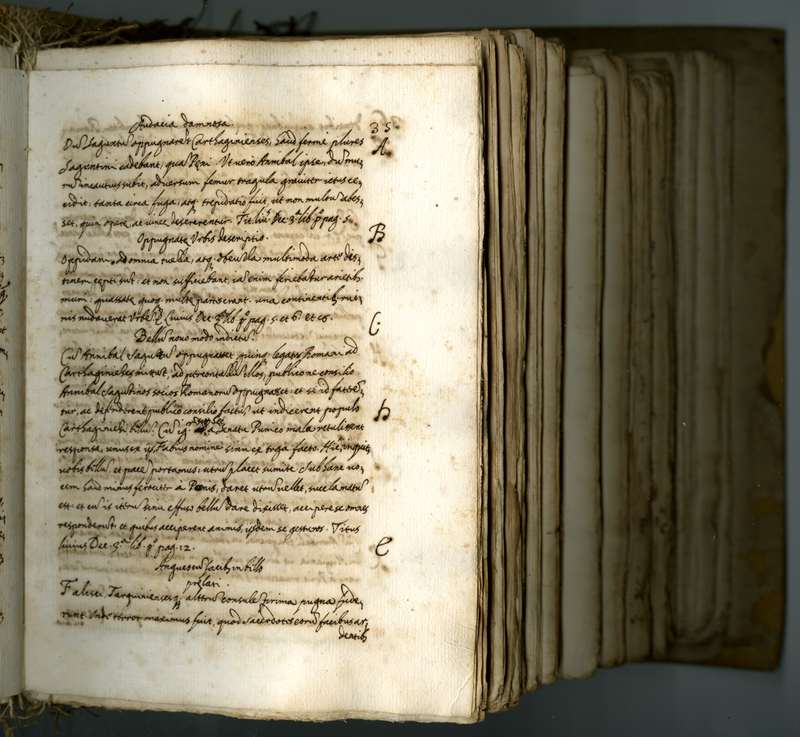 Audacia damnosa.
35.
Dũ Saguntũ oppugnaret Carthaginienses, haud ferme plures
A.
Saguntini cadebant, quã Peni. Ut vero Annibal ipse, dũ mu,
rũ incautius subit, adversum femur tragula graviter ictus ce,
cidit. tanta circa fuga, atq. trepidatio fuit, ut non multũ abes,
set, quin opera, ac vineę desererentur. Tit. liu. Dec. 3.ª lib. p.º pag. 5.
B
Oppugnatę Urbis descriptio.
Oppidani ad omnia tuẽda, atq. obeũda multimoda arte dis,
tineri cepti sũt: et non sufficiebant, iã enim feriebãtur arietib.
murn: quassatę quoq. multę partes erant. una continentib. rui,
nis nudaverat Urbẽ. T. Livius Dec. 3.ª lib. p.º pag. 5. et 6.
C
Bellũ novo modo indictũ.
Cũ Annibal Sagũtũ oppugnasset, quinq. legatos Romani ad
Carthaginienses mittunt, ad percontãdũ illos, publico ne consilio
Annibal Sagũtinos socios Romanorũ oppugnasset: et si id fatere,
tur, ac defenderent publico consilio factũ, ut indicerent populo
D
Carthaginiensi bellũ. Cũ ig. a senatu Punico mala retulissent
responsa, unus ex ijs, Fabius nomine sinu ex toga facto. Hic, inquit,
vobis bellũ, et pacẽ portamus: utrũ placet sumite. Sub hanc vo,
cem haud minus ferociter a Penis, daret utrũ vellet, succlamatũ
est: et cũ is iterũ sinu effuso bellũ dare dixisset, accipere se omnes
responderunt: et quibus acciperent animis, ijsdem se gesturos. Titus
livius Dec. 3.ª lib. p.º pag. 12.
E
Angues cũ facib. in bello
prelati.
Falisci, Tarquiniensesq. alterũ consulẽ prima pugna fude,
runt. Inde terror maximus fuit, quod Sacerdotes eorũ facibus ar,
dentib.